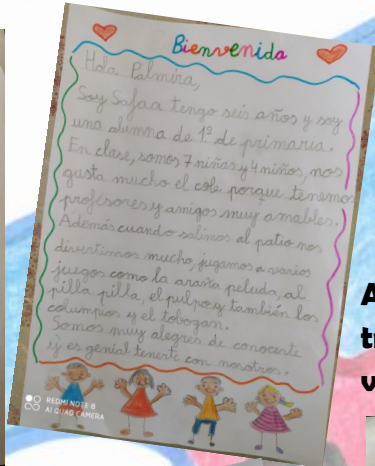 Bienvenida
Hola Palmira,
Soy Safaa tengo seis años y soy
una alumna de 1º de primaria.
En clase, somos 7 niñas y 4 niños, nos
gusta mucho el cole porque tenemos
profesores y amigos muy amables.
Además cuando salimos al patio nos
divertimos mucho, jugamos a varios
juegos como la araña peluda, al
pilla pilla, el pulpo y también los
columpios y el tobogan.
Somos muy alegres de conocerte
y es genial tenerte con nosotros.
REDMI NOTE 8
AI QUAD CAMERA